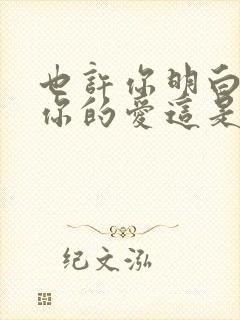 也許你明白
你的愛這是
纪文泓